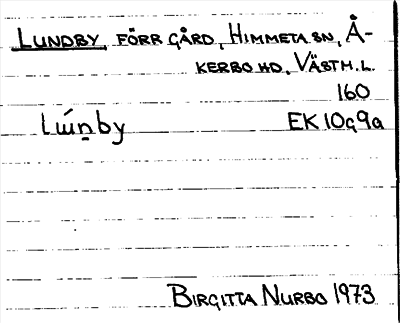 LUNDBY, FÖRR GÅRD, HIMMETA SN, Å-
KERBO HD, VÄSTM.L.
160
lẃn̲by EK 10g9a
BIRGITTA NURBO 1973